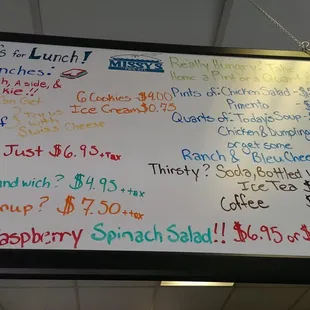 s for Lunch!
MISSY'S
Really Hungry? Take
Home a Pint or a Quart
nches:
h, A side, &
kie!!
6 Cookies $4.00
Ice Cream $0.75
Swiss Cheese
Pints of: Chicken Salad - $
Pimento - $
Quarts of: Today's Soup - $
Chicken & Dumpling
or get some
Ranch & Bleu Chee
Just $6.95 +tax
Thirsty? Soda, Bottled
Ice Tea $
Coffee $
and wich? $4.95 +tax
oup? $7.50 +tax
aspberry Spinach Salad!! $6.95 or $